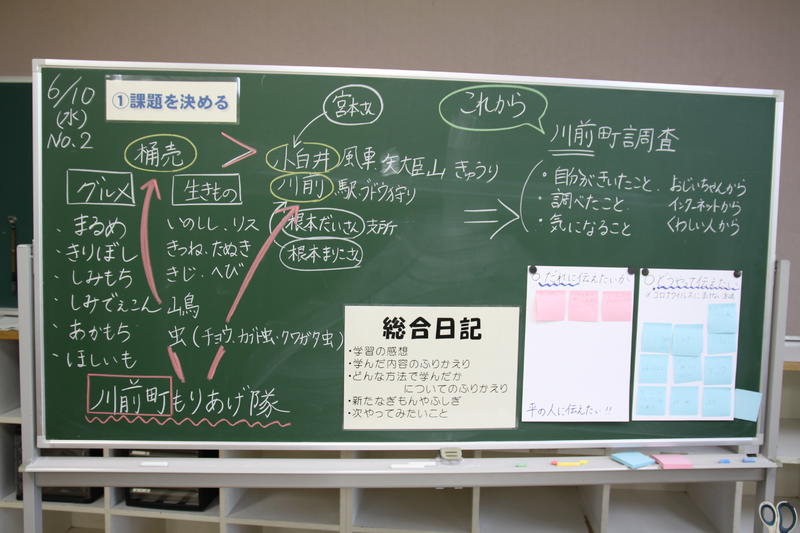 6/10
(水)
No.2
①課題を決める
桶売
グルメ
・まるめ
・きりぼし
・しみもち
・しみでぇこん
・あかもち
・ほしいも
生きもの
いのしし、リス
きつね、たぬき
きじ、へび
山鳥
虫(チョウ、カブ虫、クワガタ虫)
川前町もりあげ隊
宮本さん
小白井 風車、矢大臣山 きゅうり
川前 駅、ブドウ狩り
根本だいさん 支所
根本まりこさん
これから
川前町調査
・自分がきいたこと、おじいちゃんから
・調べたこと、インターネットから
・気になること くわしい人から
総合日記
・学習の感想
・学んだ内容のふりかえり
・どんな方法で学んだか
についてのふりかえり
・新たなぎもんやふしぎ
・次やってみたいこと
○だれに伝えたいか
平の人に伝えたい!!
○どうやって伝えたい